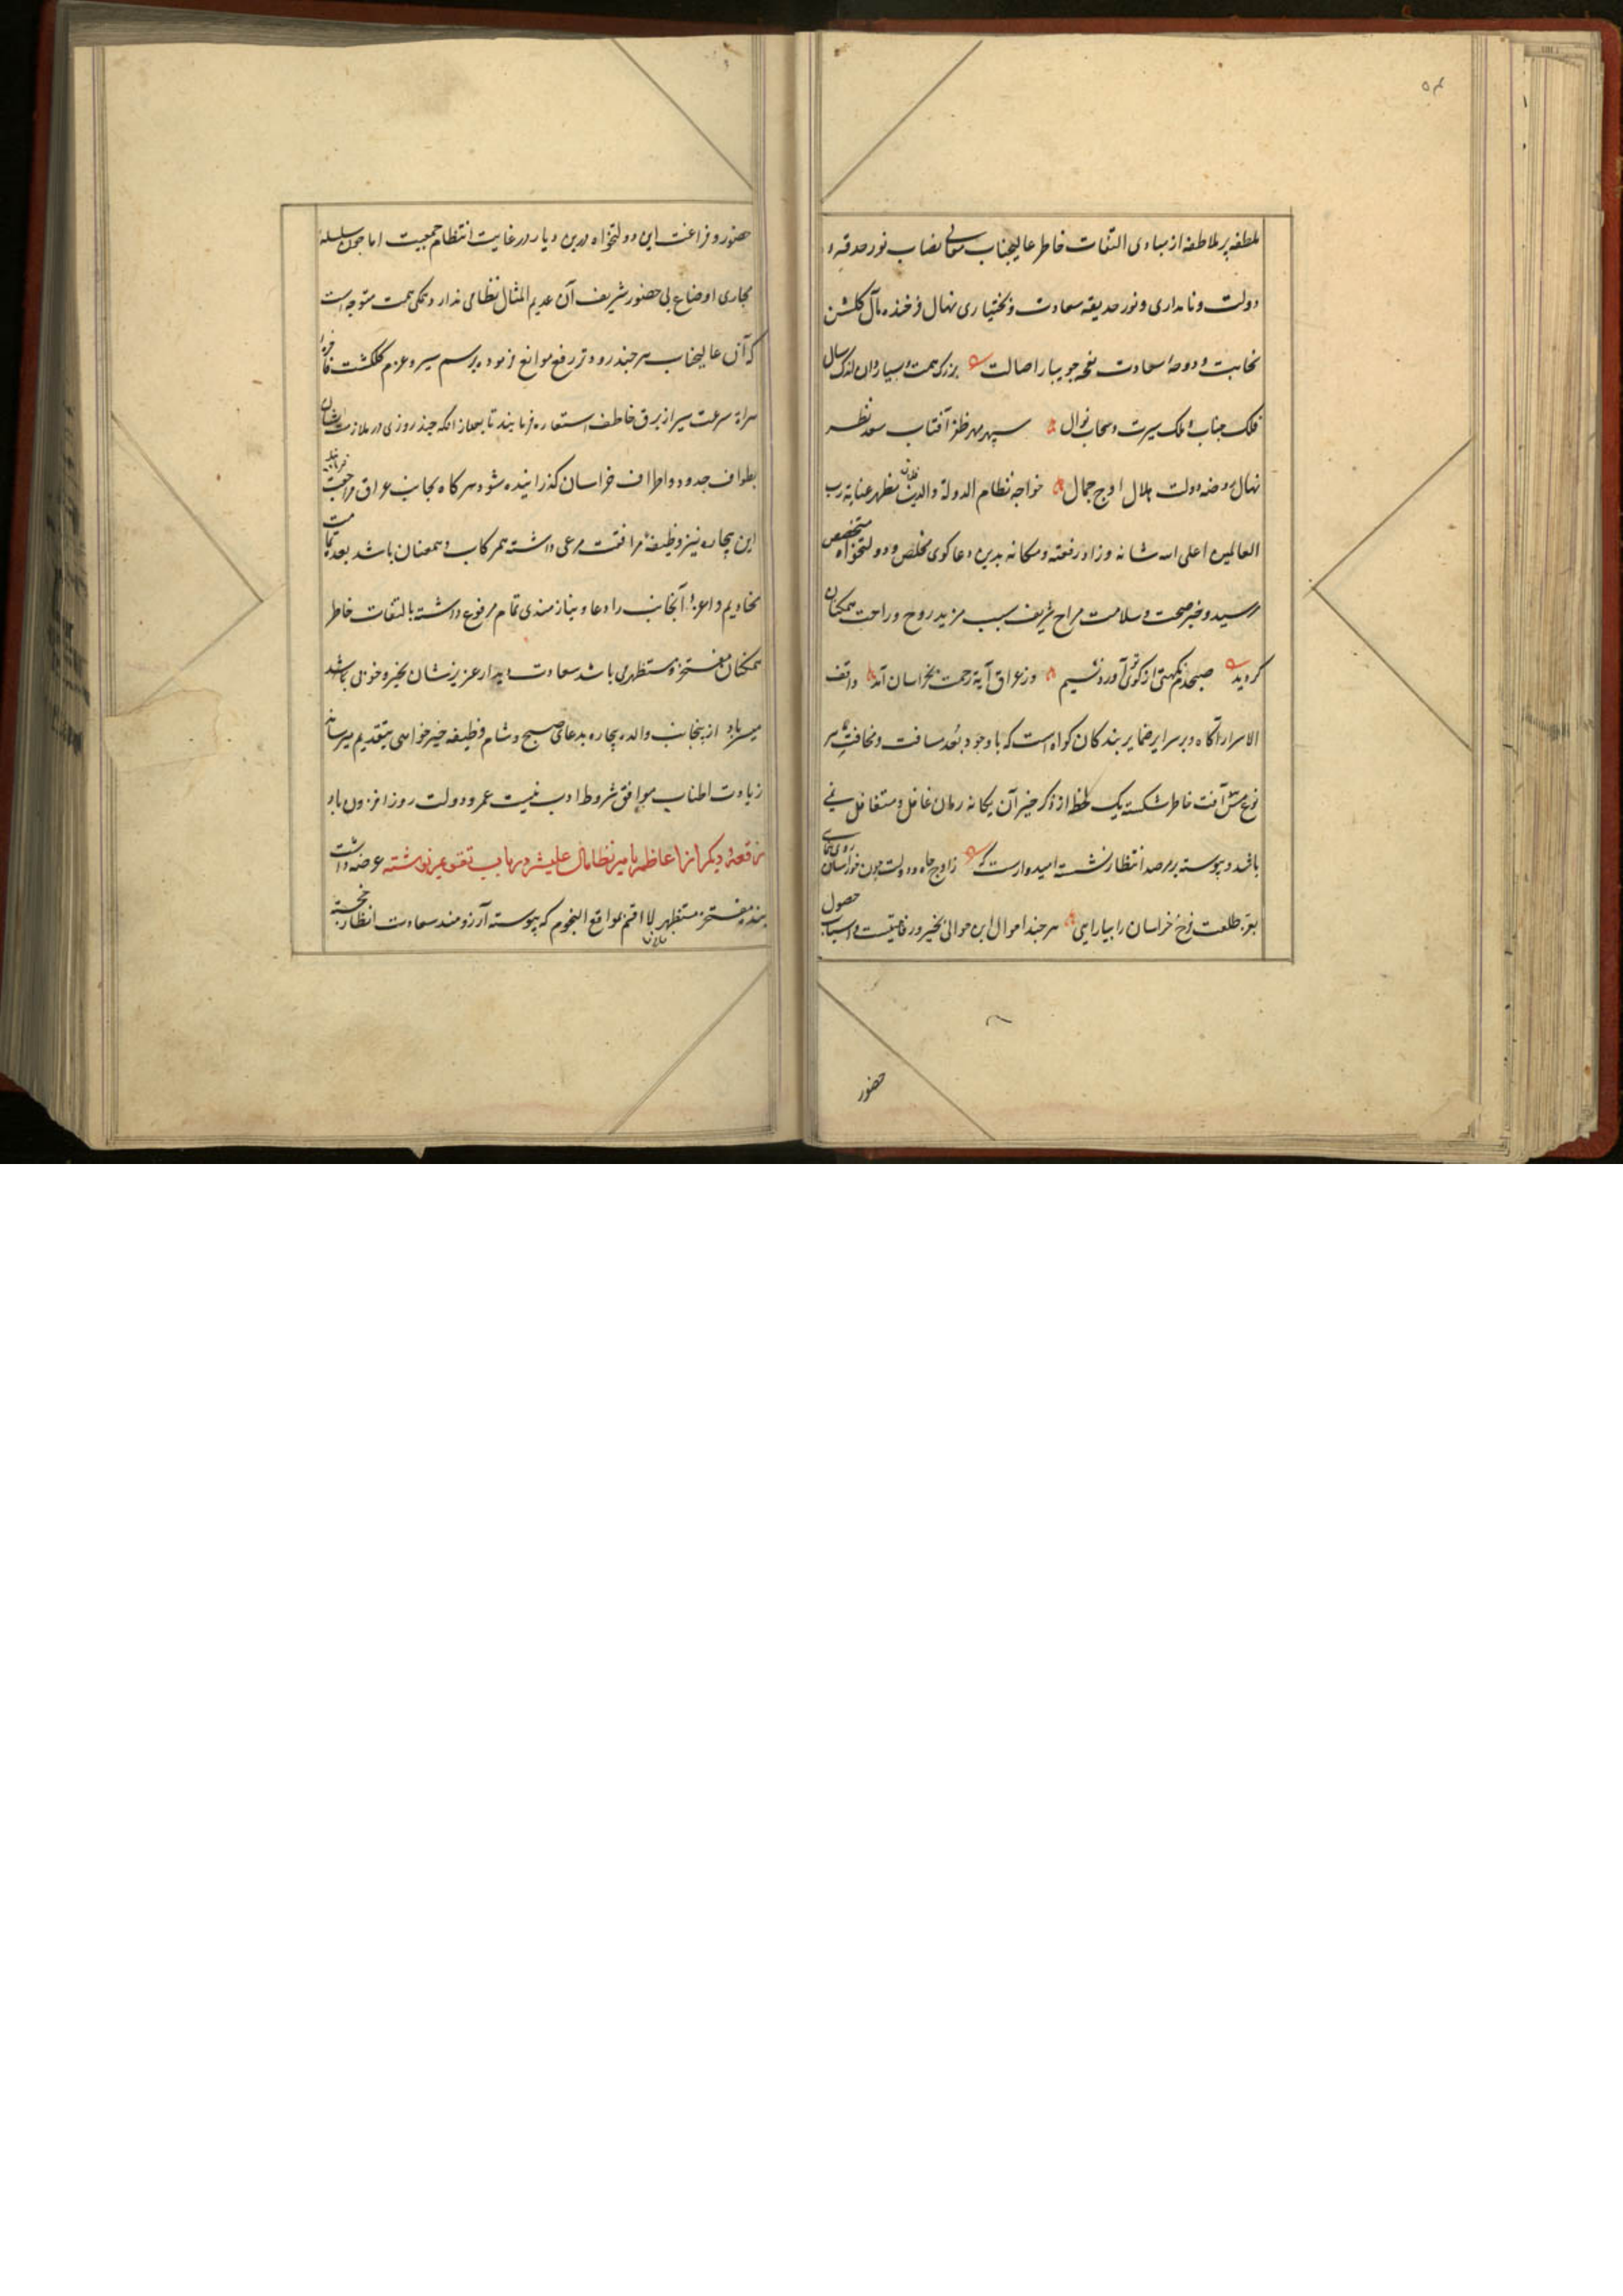 ۵۴
ملطفه پر ملاطفه از مبادی التفات خاطر عالیجناب معالی نصاب نور حدقه و
دولت و نامداری و نور حدیقه سعادت و بختیاری نهال فرخنده مآل کلشن
نجابت و دوحه سعادت جویبار اصالت بزرک همت و بسیار دان اندک سال
فلک جناب و ملک سیرت و سحاب نوال سپهر مهر ظفر آفتاب سعد نظر
نهال روضه دولت هلال اوج جمال خواجه نظام الدولة والدین مظهر عنایة رب
العالمین اعلی الله شانه وزاد رفعته ومکانه بدین دعا کوی مخلص و دولتخواه متخصص
رسید و خبر صحت و سلامت مزاج شریف سبب مزید روح و راحت همکنان
کردید صبحدم نکهتی از کوی تو آورد نسیم وز عراق آیة رحمت بخراسان آمد واقف
الاسرار آکاه و بر سرایر ضمایر بندکان کواه است که با وجود بعد مسافت و مخافت هر
نوع آفت خاطر شکسته یک لحظه از ذکر خیر آن یکانه زمان غافل و متغافل نی
باشد و پیوسته بر مرصد انتظار نشسته امیدوارست که ز اوج جاه و دولت چون خور آسان روی نمای
بفر طلعت فرخ خراسان را بیارایی هر چند احوال این حوالی بخیر و رفاهیتست و اسباب حصول
حضور
حضور و فراغت این دولتخواه درین دیار در غایت انتظام جمعیت اما چون سلسله
مجاری اوضاع بی حضور شریف آن عدیم المثال نظامی ندارد همکی همت متوجه است
که آن عالیجناب هر چند زودتر رفع موانع فرموده برسم سیر و عزم کلکشت
هراة سرعت سیر از برق خاطف استعاره فرمایند تا بعد از آنکه چند روزی در ملازمت ایشان
بطواف حدود و اطراف خراسان کذرانیده شود هر کاه بجانب عراق مراجعت فرمایند
این بیچاره نیز وظیفه مرافقت مرعی داشته همرکاب و همعنان باشد بعد
مخادیم و اعزه آنجانب را دعا و نیازمندی تمام مرفوع داشته بالتفات خاطر
همکنان مفتخر و مستظهر می باشد سعادت دیدار عزیزشان بخیر و خوبی
میسر باد از اینجانب والده بیچاره بدعای صبح و شام وظیفه خیرخواهی بتقدیم میرساند
زیادت اطناب موافق شروط ادب نیست عمر و دولت روز افزون باد
رقعه دیکر از اعاظم بامیر نظام الدین علیشیر در باب تفقد عزیز نوشته عرضه داشت
بنده مفتخر مستظهر لا اقسم بمواقع النجوم که پیوسته آرزومند سعادت انظار خجسته